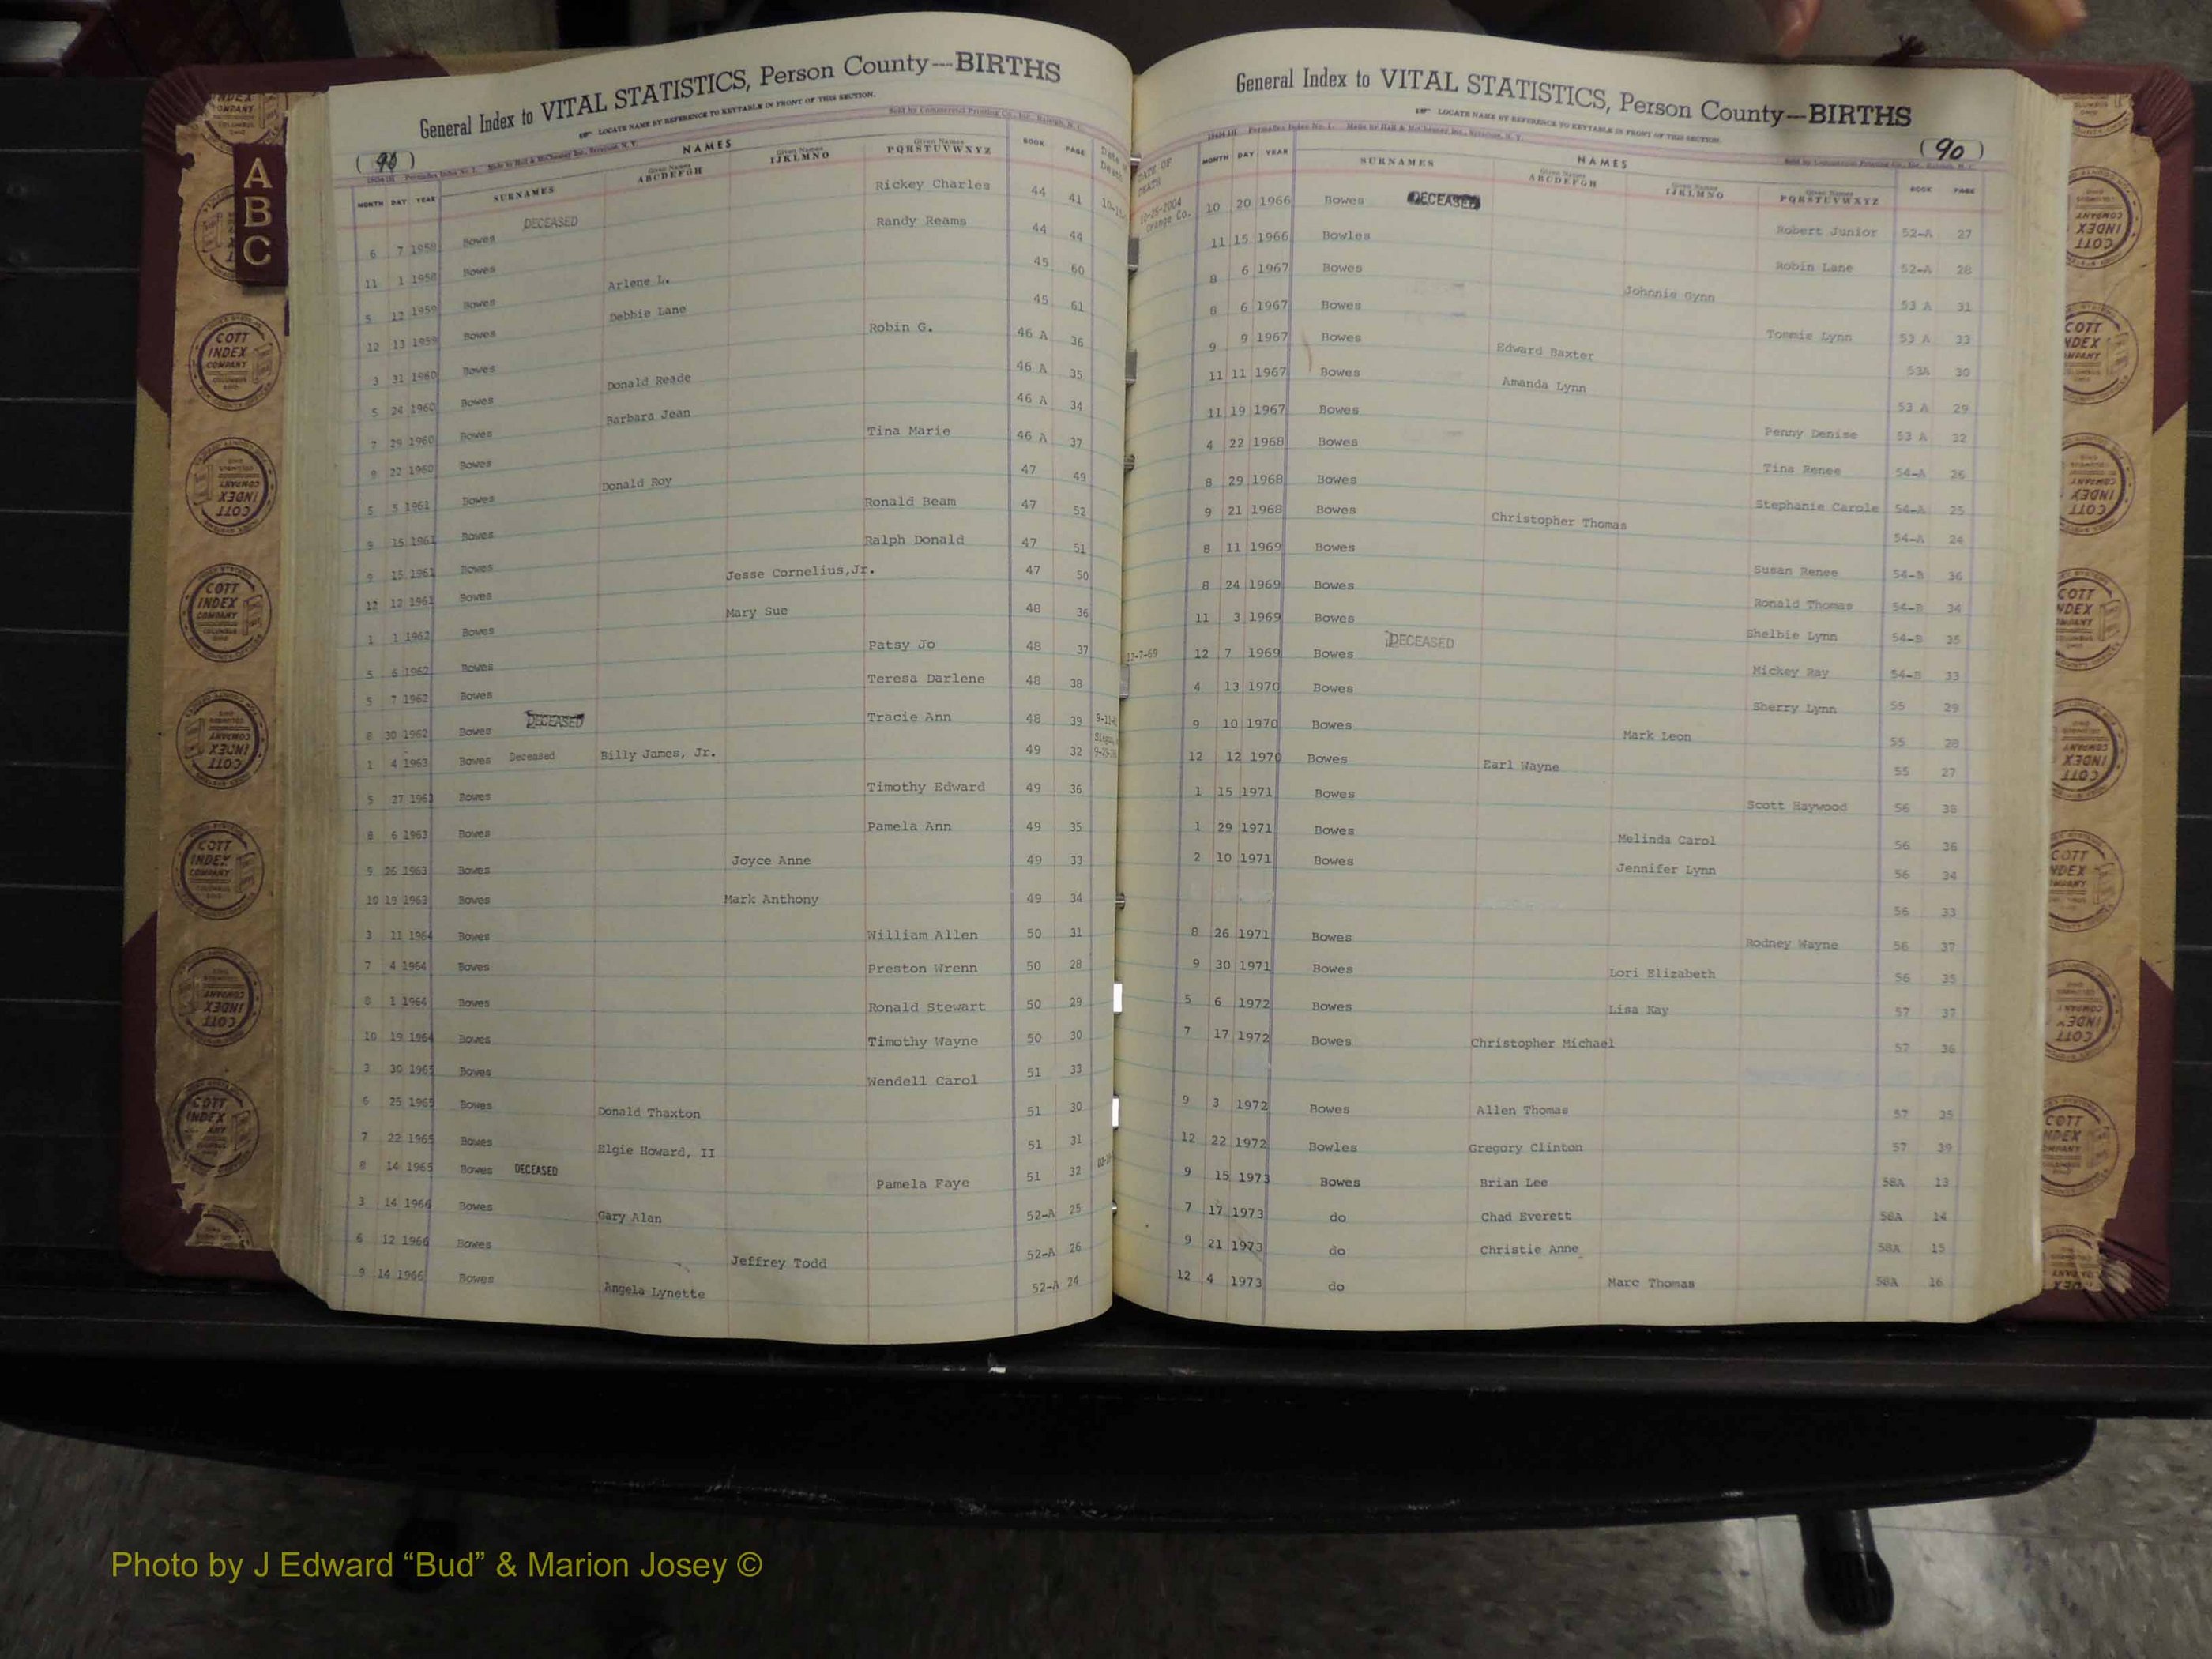 General Index to VITAL STATISTICS, Person County---BIRTHS
LOCATE NAME BY REFERENCE TO KEYTABLE IN FRONT OF THIS SECTION.
(90)
Sold by Commercial Printing Co., Inc., Raleigh, N. C.
NAMES
MONTH DAY YEAR SURNAMES Given Names ABCDEFGH Given Names IJKLMNO Given Names PQRSTUVWXYZ BOOK PAGE
6 7 1958 Bowes DECEASED Rickey Charles 44 41
11 1 1958 Bowes Randy Reams 44 44
5 12 1959 Bowes Arlene L. 45 60
12 13 1959 Bowes Debbie Lane 45 61
3 31 1960 Bowes Robin G. 46 A 36
5 24 1960 Bowes Donald Reade 46 A 35
7 29 1960 Bowes Barbara Jean 46 A 34
9 22 1960 Bowes Tina Marie 46 A 37
5 5 1961 Bowes Donald Roy 47 49
9 15 1961 Bowes Ronald Beam 47 52
9 15 1961 Bowes Ralph Donald 47 51
12 12 1961 Bowes Jesse Cornelius,Jr. 47 50
1 1 1962 Bowes Mary Sue 48 36
5 6 1962 Bowes Patsy Jo 48 37
5 7 1962 Bowes Teresa Darlene 48 38
8 30 1962 Bowes DECEASED Tracie Ann 48 39
1 4 1963 Bowes Deceased Billy James, Jr. 49 32
5 27 1963 Bowes Timothy Edward 49 36
8 6 1963 Bowes Pamela Ann 49 35
9 26 1963 Bowes Joyce Anne 49 33
10 19 1963 Bowes Mark Anthony 49 34
3 11 1964 Bowes William Allen 50 31
7 4 1964 Bowes Preston Wrenn 50 28
8 1 1964 Bowes Ronald Stewart 50 29
10 19 1964 Bowes Timothy Wayne 50 30
3 30 1965 Bowes Wendell Carol 51 33
6 25 1965 Bowes Donald Thaxton 51 30
7 22 1965 Bowes Elgie Howard, II 51 31
8 14 1965 Bowes DECEASED Pamela Faye 51 32
3 14 1966 Bowes Gary Alan 52-A 25
6 12 1966 Bowes Jeffrey Todd 52-A 26
9 14 1966 Bowes Angela Lynette 52-A 24
General Index to VITAL STATISTICS, Person County---BIRTHS
LOCATE NAME BY REFERENCE TO KEYTABLE IN FRONT OF THIS SECTION.
(90)
NAMES
DATE OF DEATH MONTH DAY YEAR SURNAMES Given Names ABCDEFGH Given Names IJKLMNO Given Names PQRSTUVWXYZ BOOK PAGE
10-25-2004 Orange Co. 10 20 1966 Bowes DECEASED Robert Junior 52-A 27
11 15 1966 Bowles Robin Lane 52-A 28
8 6 1967 Bowes Johnnie Gynn 53 A 31
8 6 1967 Bowes Tommie Lynn 53 A 33
9 9 1967 Bowes Edward Baxter 53A 30
11 11 1967 Bowes Amanda Lynn 53 A 29
11 19 1967 Bowes Penny Denise 53 A 32
4 22 1968 Bowes Tina Renee 54-A 26
8 29 1968 Bowes Stephanie Carole 54-A 25
9 21 1968 Bowes Christopher Thomas 54-A 24
8 11 1969 Bowes Susan Renee 54-B 36
8 24 1969 Bowes Ronald Thomas 54-B 34
11 3 1969 Bowes Shelbie Lynn 54-B 35
12-7-69 12 7 1969 Bowes DECEASED Mickey Ray 54-B 33
4 13 1970 Bowes Sherry Lynn 55 29
9 10 1970 Bowes Mark Leon 55 28
12 12 1970 Bowes Earl Wayne 55 27
1 15 1971 Bowes Scott Haywood 56 38
1 29 1971 Bowes Melinda Carol 56 36
2 10 1971 Bowes Jennifer Lynn 56 34
56 33
8 26 1971 Bowes Rodney Wayne 56 37
9 30 1971 Bowes Lori Elizabeth 56 35
5 6 1972 Bowes Lisa Kay 57 37
7 17 1972 Bowes Christopher Michael 57 36
9 3 1972 Bowes Allen Thomas 57 35
12 22 1972 Bowles Gregory Clinton 57 39
9 15 1973 Bowes Brian Lee 58A 13
7 17 1973 do Chad Everett 58A 14
9 21 1973 do Christie Anne 58A 15
12 4 1973 do Marc Thomas 58A 16
A
B
C
COTT INDEX COMPANY
Photo by J Edward “Bud” & Marion Josey ©